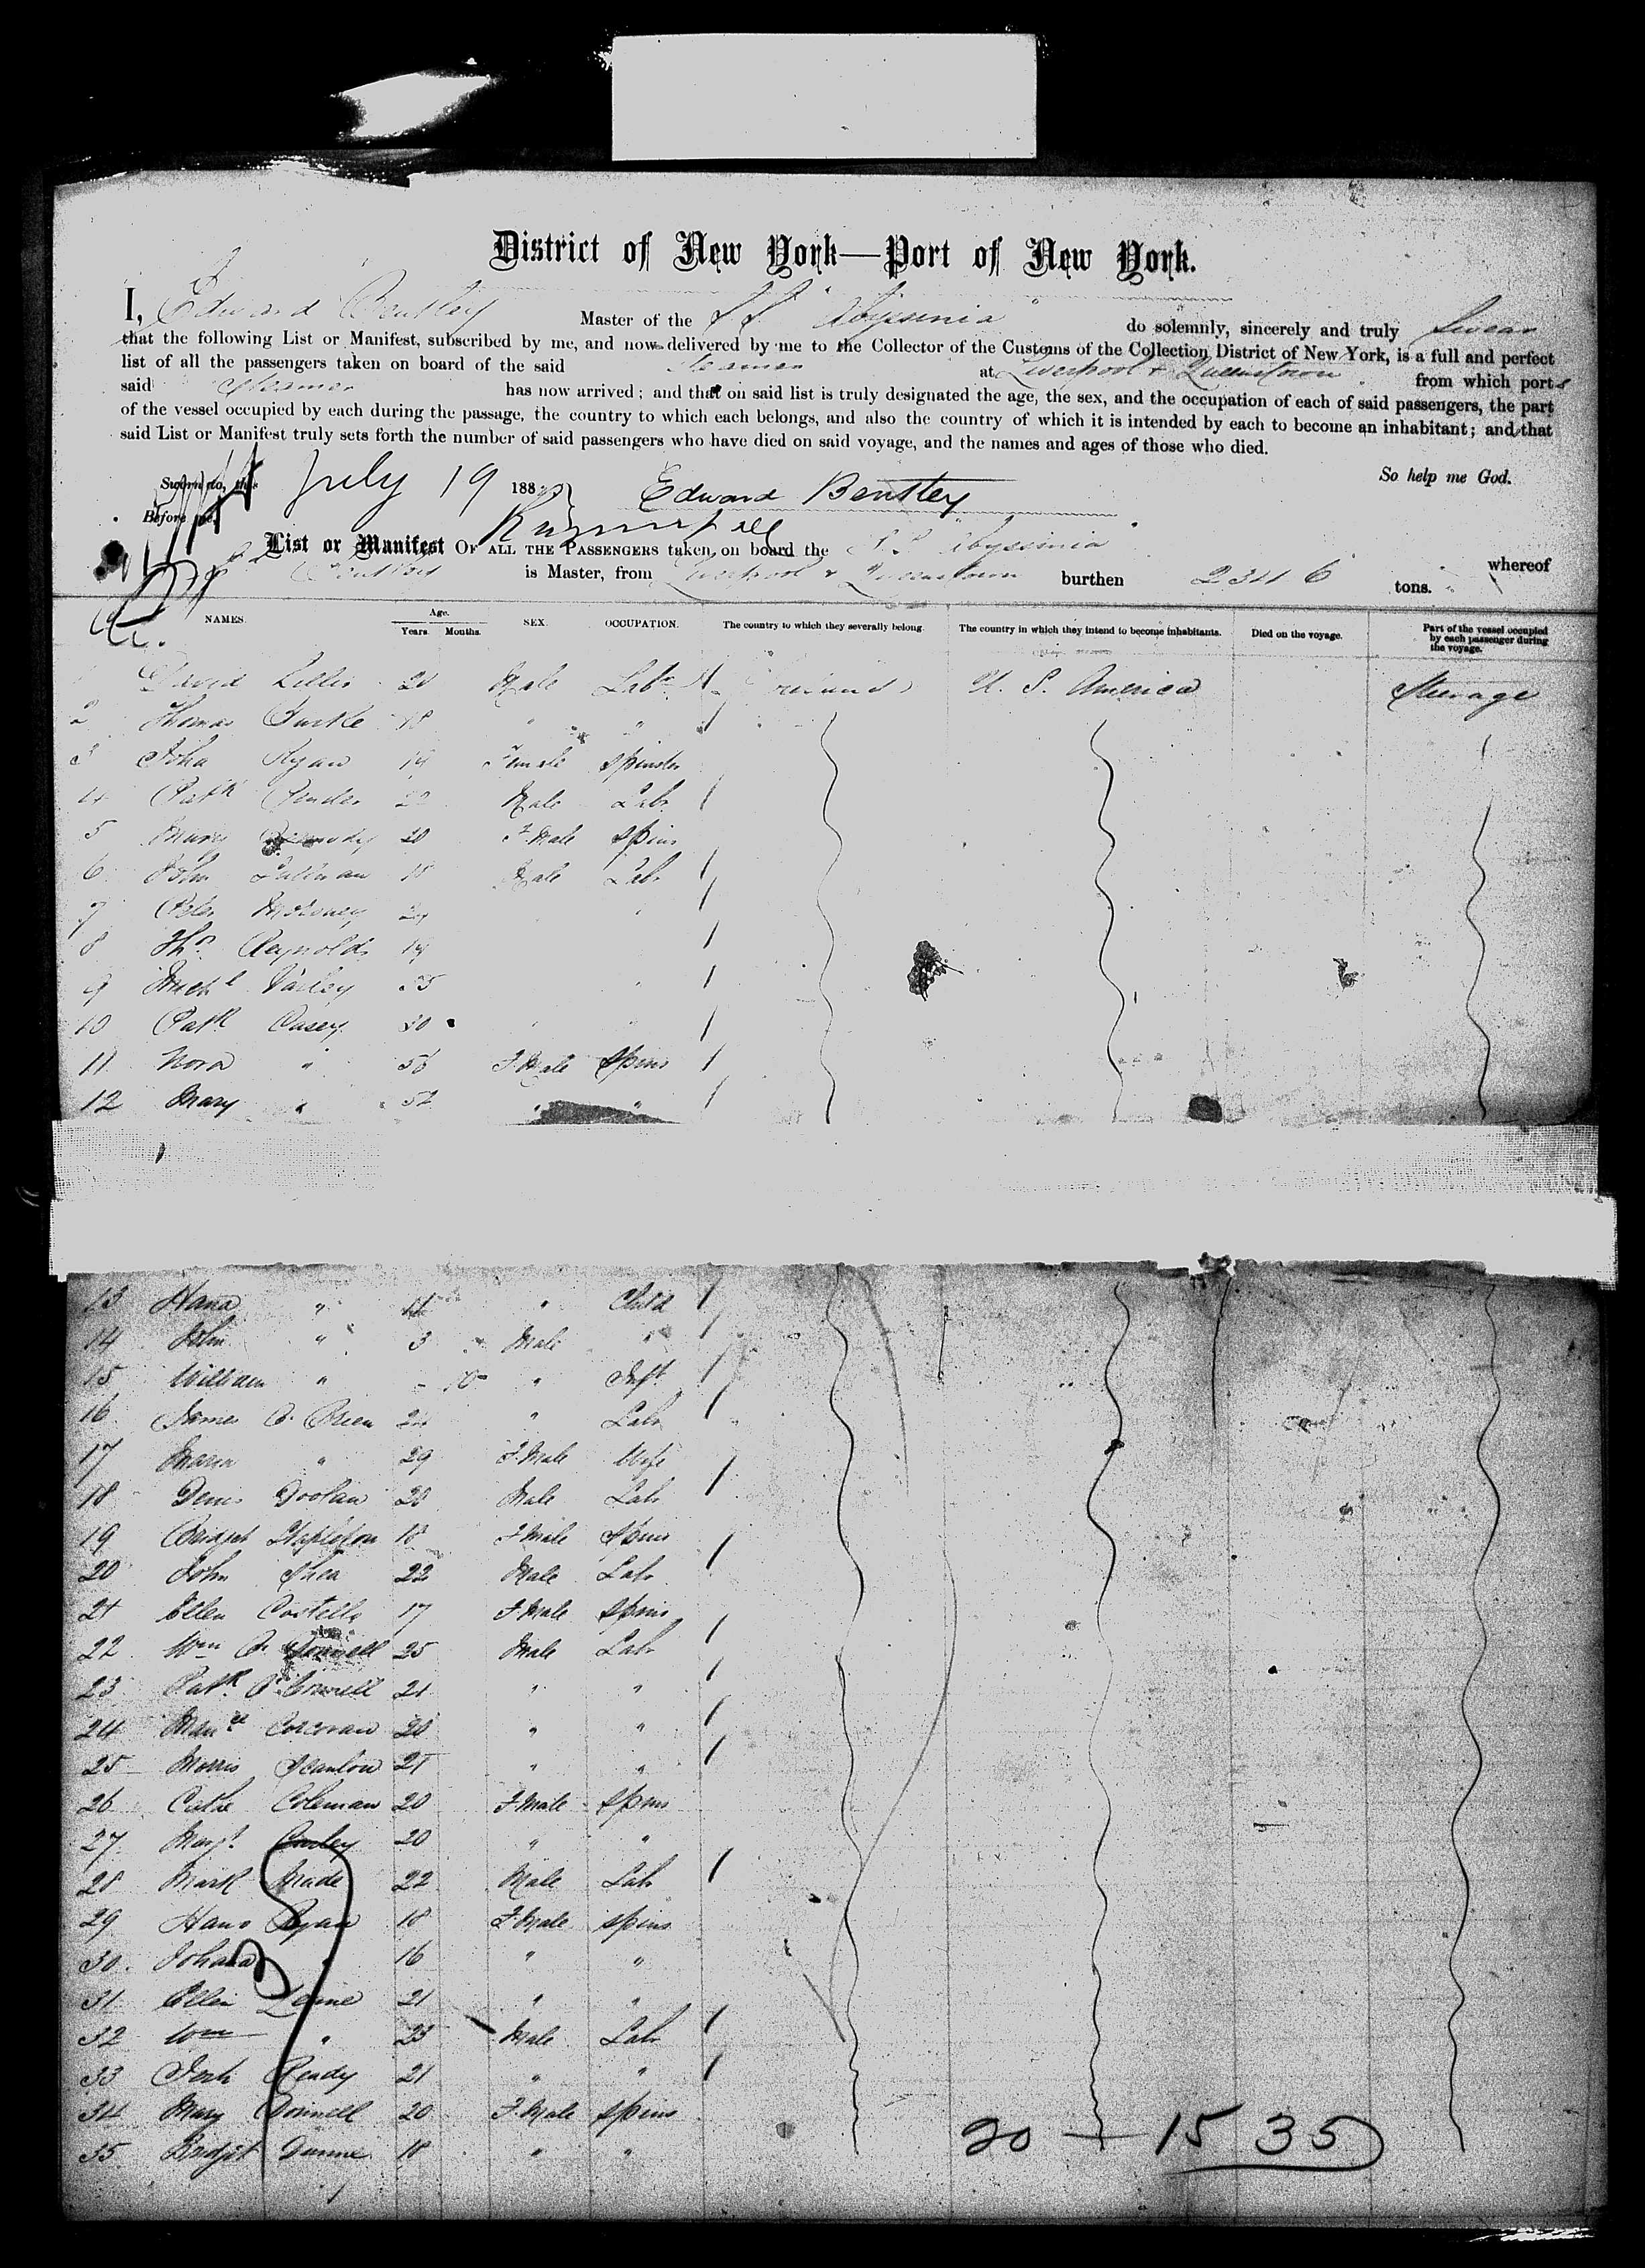 District of New York—Port of New York.
I, Edward Bentley Master of the S.S. "Abyssinia" do solemnly, sincerely and truly swear
that the following List or Manifest, subscribed by me, and now delivered by me to the Collector of the Customs of the Collection District of New York, is a full and perfect
list of all the passengers taken on board of the said Steamer at Liverpool & Queenstown from which ports
said Steamer has now arrived; and that on said list is truly designated the age, the sex, and the occupation of each of said passengers, the part
of the vessel occupied by each during the passage, the country to which each belongs, and also the country of which it is intended by each to become an inhabitant; and that
said List or Manifest truly sets forth the number of said passengers who have died on said voyage, and the names and ages of those who died.
So help me God.
Sworn to, this July 19 188 Edward Bentley
Before me,
List or Manifest OF ALL THE PASSENGERS taken on board the S.S. "Abyssinia" whereof
Bentley is Master, from Liverpool & Queenstown burthen 2346 tons.
NAMES. Age. Years. Months. SEX. OCCUPATION. The country to which they severally belong. The country in which they intend to become inhabitants. Died on the voyage. Part of the vessel occupied by each passenger during the voyage.
David Lillis 20 Male Labr Ireland U. S. America Steerage
2 Thomas Burke 18 " "
3 Joha Ryan 19 Female Spinster
4 Patk 22 Male Labr
5 Mary 20 F Male Spins
6 John 18 Male Labr
7 Peter 24
8 Thos Reynolds 19
9 Michl Varley 35
10 Patk Casey 30
11 Nora " 56 F Male Spins
12 Mary " 52 " "
13 Hana " 11 " Child
14 John " 3 Male "
15 William " - 10 " Inft
16 James O'Brien 24 " Labr
17 Maria " 29 F Male Wife
18 Denis Doolan 20 Male Labr
19 Bridget Stapleton 18 F Male Spins
20 John Shea 22 Male Labr
21 Ellen Costello 17 F Male Spins
22 Wm O'Donnell 25 Male Labr
23 Patk O'Connell 21 " "
24 Corcoran 20 " "
25 Morris Scanlon 21 " "
26 Cathe Coleman 20 F Male Spins
27 Margt Conley 20 " "
28 Mark Meade 22 Male Labr
29 Hano Ryan 18 F Male Spins
30 Johana " 16 " "
31 Ellen Leane 21 " "
32 Wm " 23 Male Labr
33 Jerh Ready 21 " "
34 Mary Donnell 20 F Male Spins
35 Bridget Dunne 18 " "
20 + 15 35